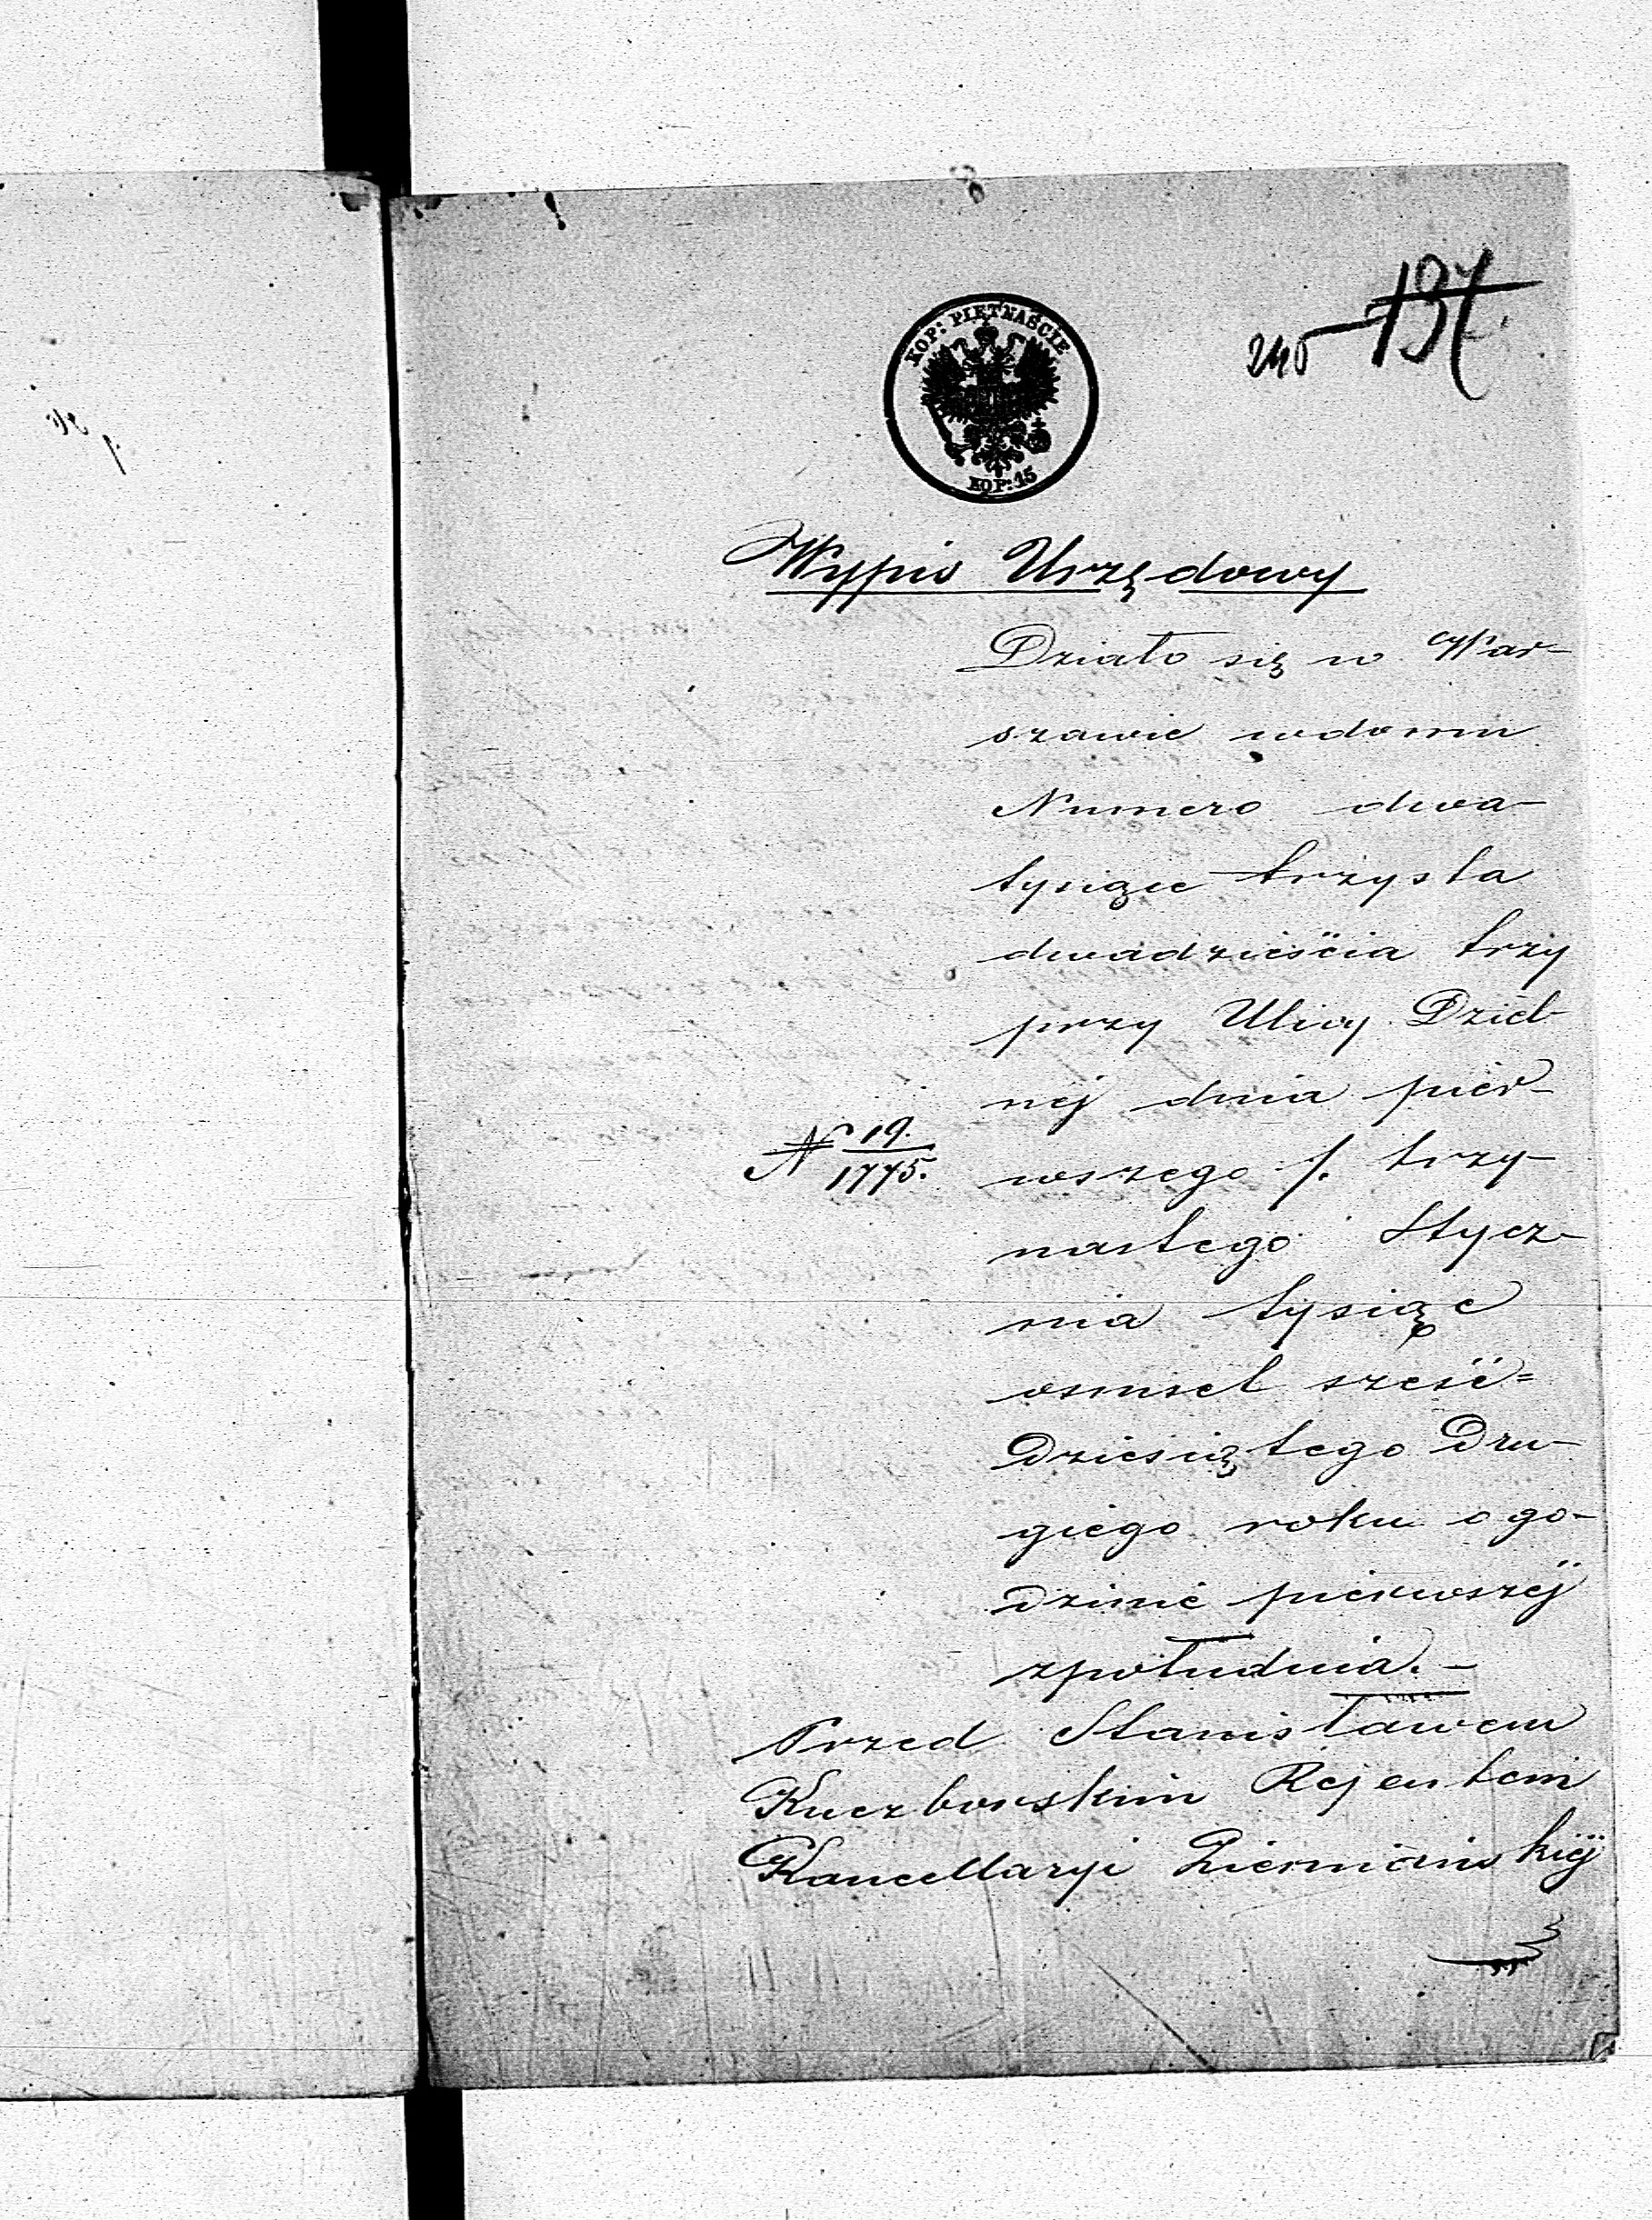 137
240
KOP: PIĘTNAŚCIE
KOP: 15
Wypis Urzędowy
Działo się w War-
szawie w domu
Numero dwa
tysiące trzysta
dwadzieścia trzy
przy Ulicy Dziel-
nej dnia pier-
wszego /. trzy-
nastego Stycz-
nia tysiąc
osmset sześć=
Dziesiątego Dru-
giego roku o go-
dzinie pierwszéj
z południa.-
N 19.
1775.
Przed Stanisławem
Kuczborskim Rejentem
Kancellaryi Ziemiańskiéj